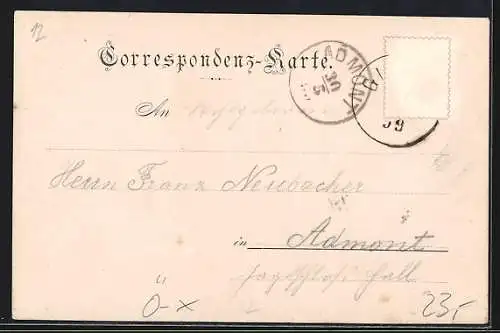 12
Correspondenz-Karte.
ADMONT
30
5
99
An
Herrn Franz Neubacher
in Admont
Jagdschloß Hall
O-X
23,-